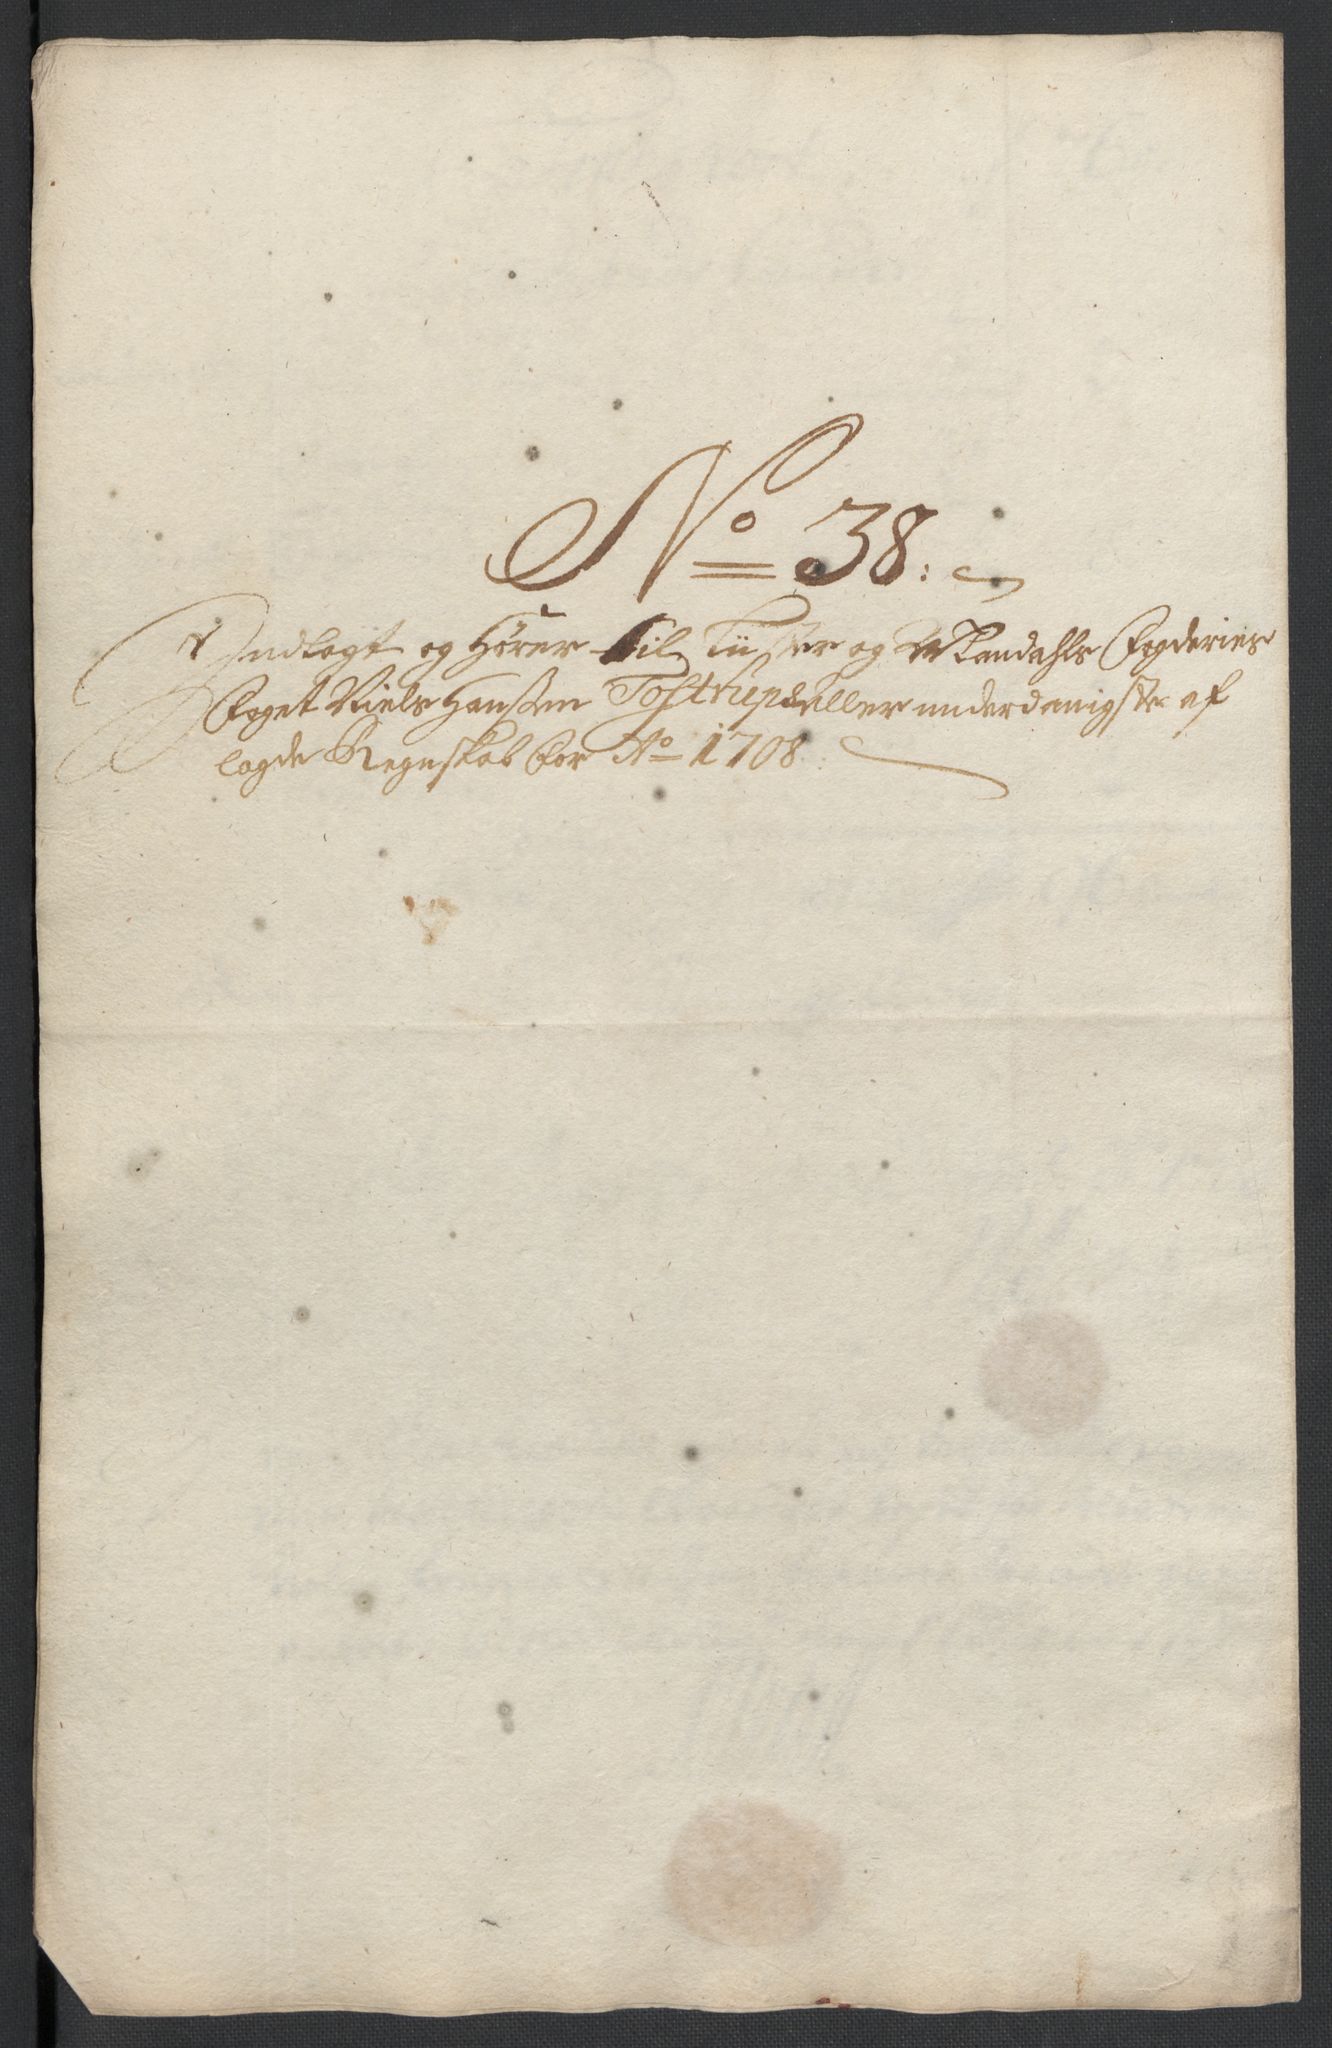 No 38.
Indlagt og Hører til Lister og Mandahls Fogderies
Foget Niels Hanssen Tostrups aller underdanigste af
lagde Regnskab for Ao 1708